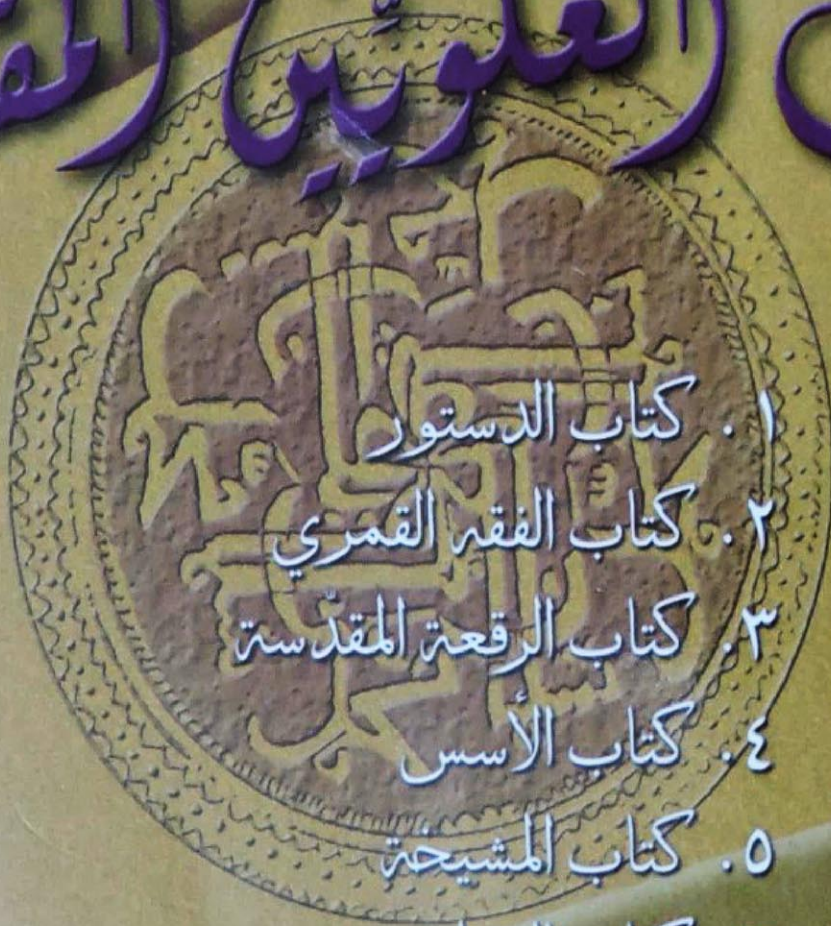 العلويّين
١. كتاب الدستور
٢. كتاب الفقه القمري
٣. كتاب الرقعة المقدّسة
٤. كتاب الأسس
٥. كتاب المشيخة